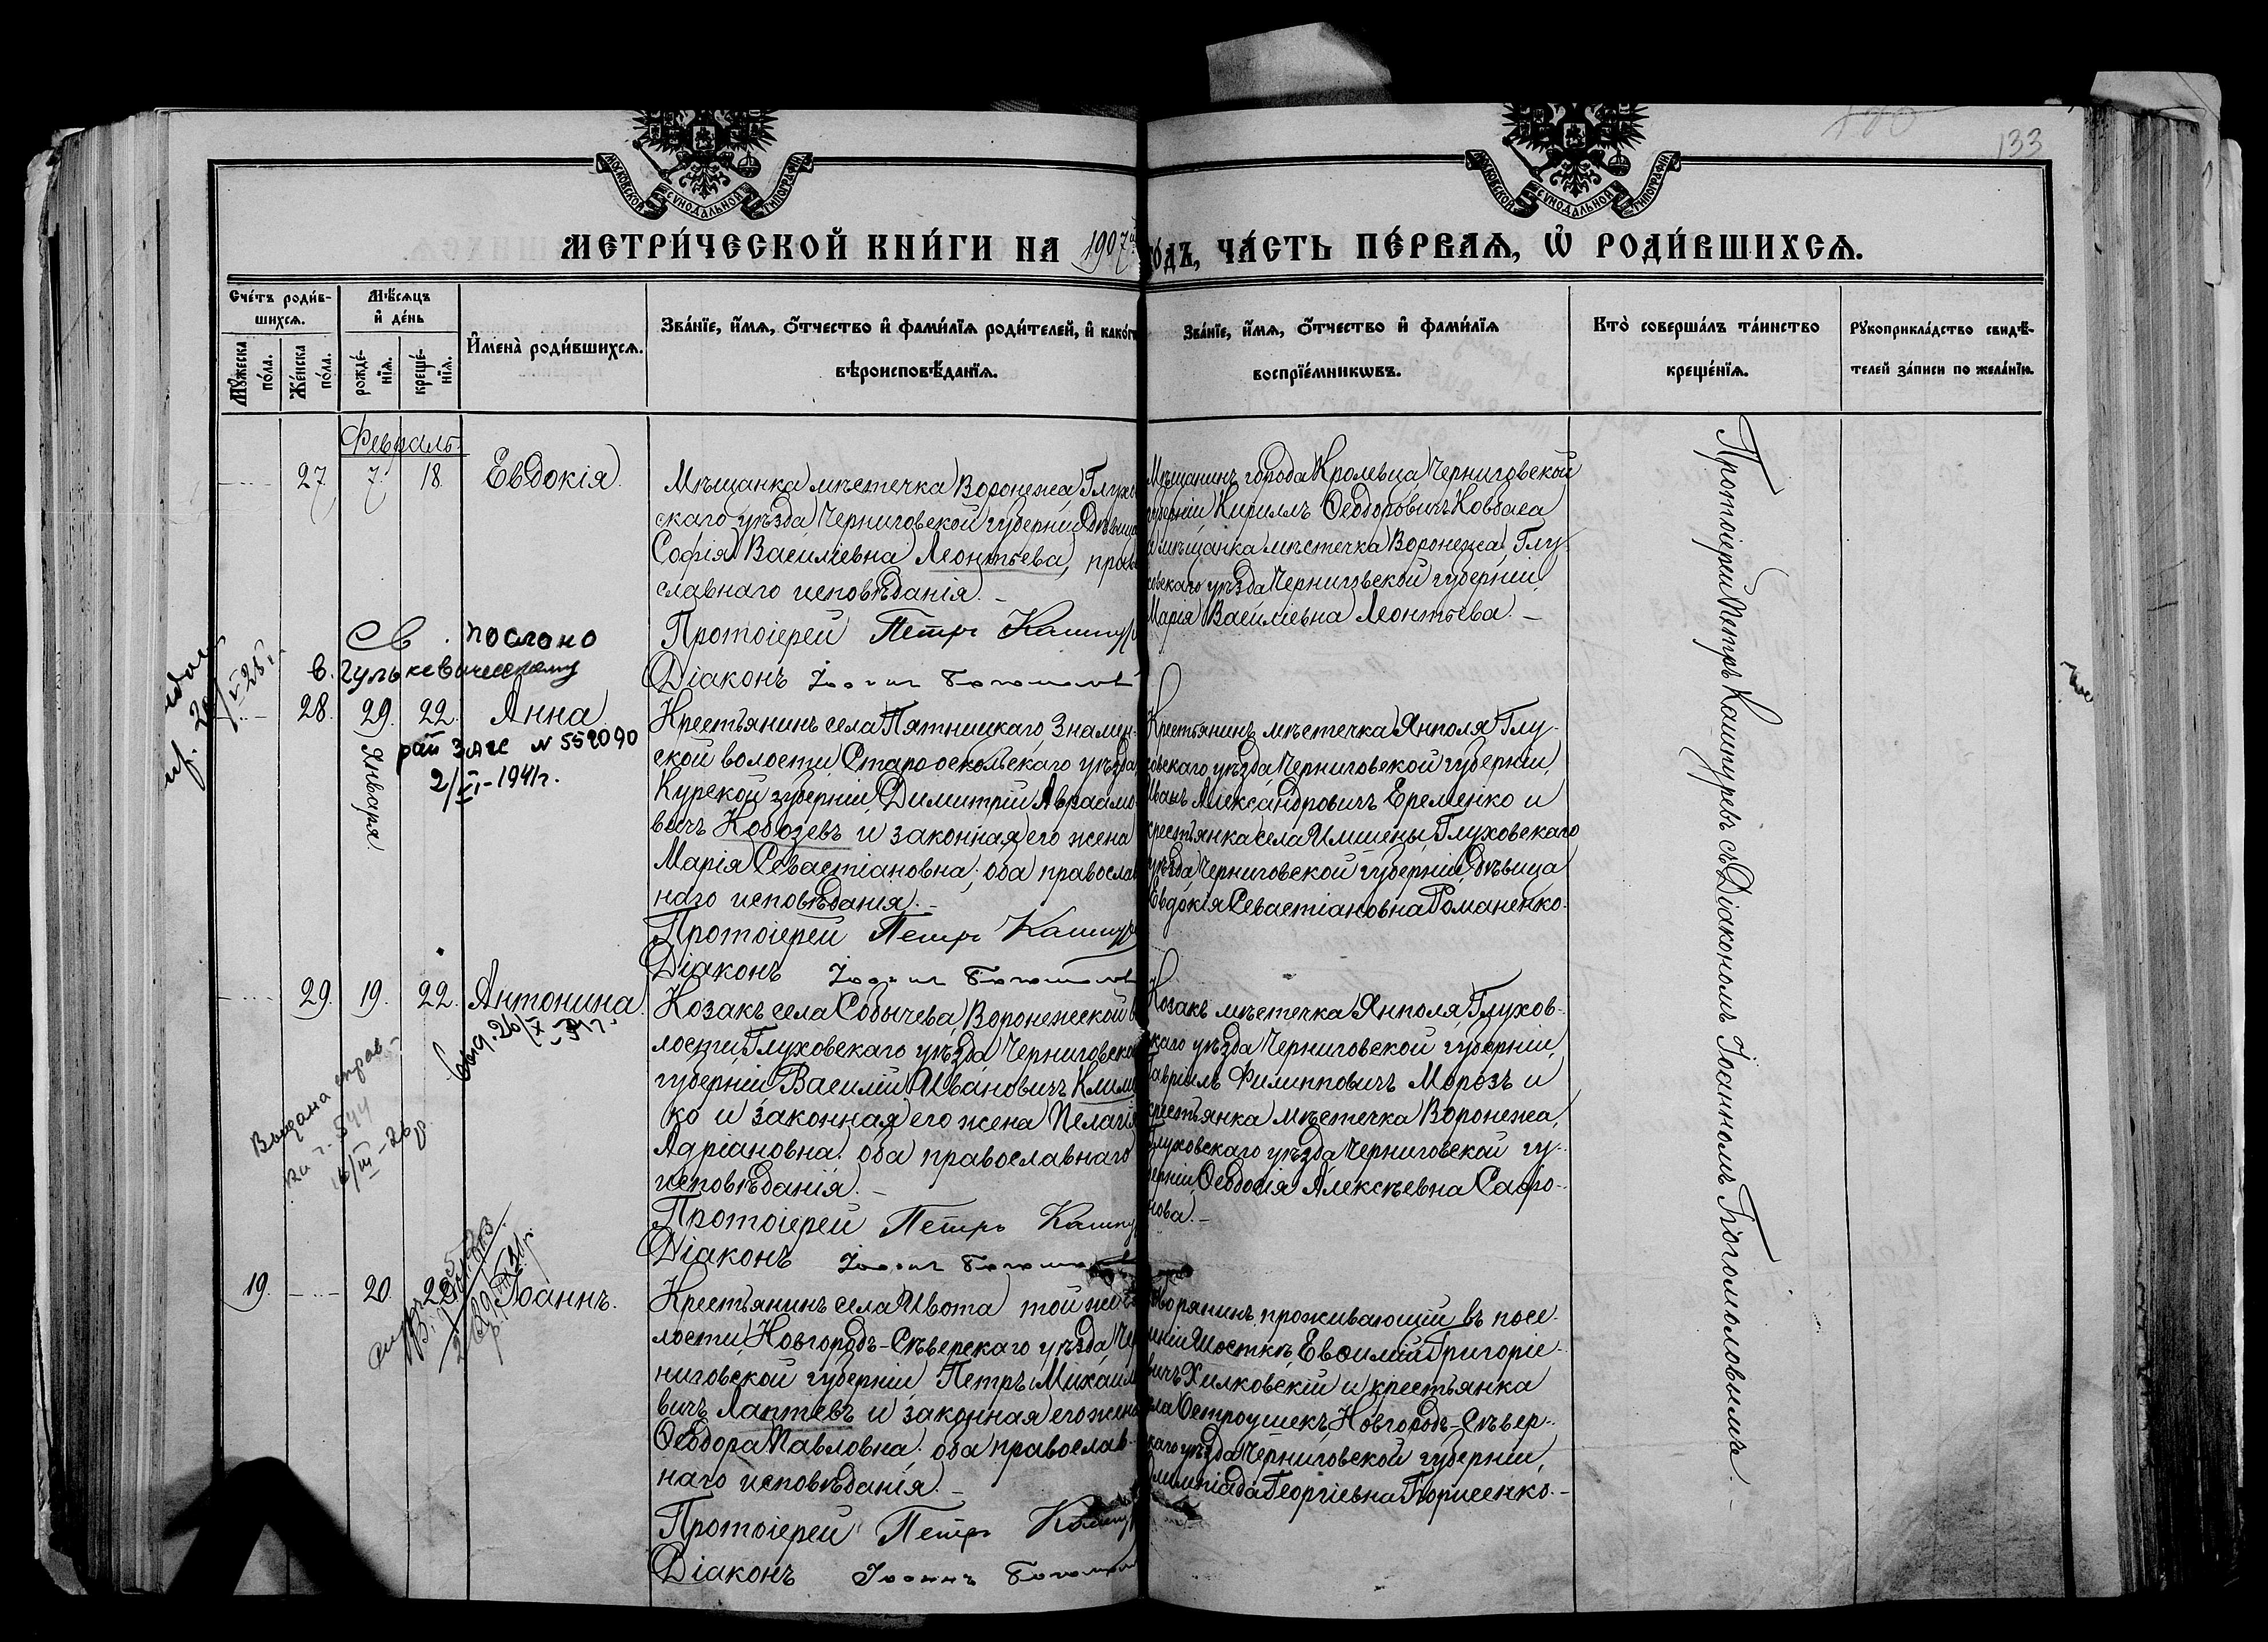 133
МОСКОВСКОЙ СУНОДАЛЬНОЙ ТИПОГРАФІИ
МОСКОВСКОЙ СУНОДАЛЬНОЙ ТИПОГРАФІИ
МЕТРИ́ЧЕСКОЙ КНИ́ГИ НА 1907й
ГОДЪ, ЧА́СТЬ ПЕ́РВАѦ, Ѡ҆ РОДИ́ВШИХСѦ.
Сче́тъ роди́в-
шихсѧ.
Мꙋ́жеска по́ла.
Же́нска по́ла.
Мѣ́сѧцъ
и҆ де́нь
рожде́-
нїѧ.
креще́-
нїѧ.
И҆мена̀ роди́вшихсѧ.
Зва́нїе, и҆́мѧ, ѻ҆́тчество и҆ фами́лїѧ роди́телей, и҆ како́гѡ
вѣроисповѣ́данїѧ.
Зва́нїе, и҆́мѧ, ѻ҆́тчество и҆ фами́лїѧ
воспрїе́мникѡвъ.
Кто̀ соверша́лъ та́инство
креще́нїѧ.
Рꙋкоприкла́дство свидѣ́-
телей за́писи по жела́нїю.
Февраль.
27. 7. 18. Евдокія.
Мѣщанка мѣстечка Воронежа, Глухов
скаго уѣзда Черниговской губерніи дѣвица
Софія Василіевна Леонтьева, право
славнаго исповѣданія. –
Протоіерей Петръ Кашпур
Діаконъ Іоаннъ Богомолов
Мѣщанинъ города Кролевца Черниговской
губерніи Кириллъ Ѳеодоровичъ Ковбаса
и мѣщанка мѣстечка Воронежа, Глу-
ховскаго уѣзда Черниговской губерніи,
Марія Василіевна Леонтьева. –
Св. послано
в. Гулькевическому
28. 29. 22. Анна.
Января.
рай ЗАГС № 552090
2/VI-1941г.
Крестьянинъ села Пятницкаго, Знамен-
ской волости, Старооскольскаго уѣзда
Курской губерніи Димитрій Авраамо-
вичъ Кобозевъ и законная его жена
Марія Севастіановна; оба православ
наго исповѣданія. –
Протоіерей Петръ Кашпур
Діаконъ Іоаннъ Богомолов
Крестьянинъ мѣстечка Янполя, Глу-
ховскаго уѣзда, Черниговской губерніи,
Иванъ Александровичъ Еременко и
крестьянка села Имшены, Глуховскаго
уѣзда, Черниговской губерніи, дѣвица
Евдокія Севастіановна Романенко.
29. 19. 22. Антонина.
выд. 26/X-
Выдана справ-
ка
16/III-26 г.
Козакъ села Собычева, Воронежской во
лости, Глуховскаго уѣзда, Черниговской
губерніи Василій Ивановичъ Климе
ко и законная его жена Пелагія
Адріановна; оба православнаго
исповѣданія. –
Протоіерей Петръ Кашпу
Діаконъ Іоаннъ Богомолов
Козакъ мѣстечка Янполя, Глухов-
скаго уѣзда Черниговской губерніи,
Гавріилъ Филипповичъ Морозъ и
крестьянка мѣстечка Воронежа,
Глуховскаго уѣзда Черниговской гу-
берніи, Ѳеодосія Алексѣевна Сафо-
нова. –
19. 20. Іоаннъ.
Крестьянинъ села Ивота той же во
лости, Новгородъ-Сѣверскаго уѣзда, Чер
ниговской губерніи, Петръ Михаило
вичъ Лаптевъ и законная его жена
Ѳеодора Павловна; оба православ-
наго исповѣданія. –
Протоіерей Петръ Кашпур
Діаконъ Іоаннъ Богомолов
Дворянинъ, проживающій въ посе-
леніи Шосткѣ, Евѳимій Григоріе-
вичъ Хилковскій и крестьянка
села Остроушекъ, Новгородъ-Сѣвер-
скаго уѣзда Черниговской губерніи,
Олимпіада Георгіевна Борисенко. –
Протоіерей Петръ Кашпуревъ съ Діакономъ Іоанномъ Богомоловымъ. –